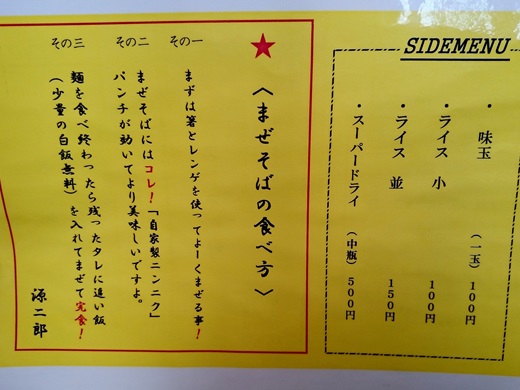 SIDEMENU
・味玉 (一玉) 100円
・ライス 小 100円
・ライス 並 150円
・スーパードライ (中瓶) 500円
★〈まぜそばの食べ方〉
その一 まずは箸とレンゲを使ってよーくまぜる事!
その二 まぜそばにはコレ!「自家製ニンニク」
パンチが効いてより美味しいですよ。
その三 麺を食べ終わったら残ったタレに追い飯
(少量の白飯無料)を入れてまぜて完食!
源二郎